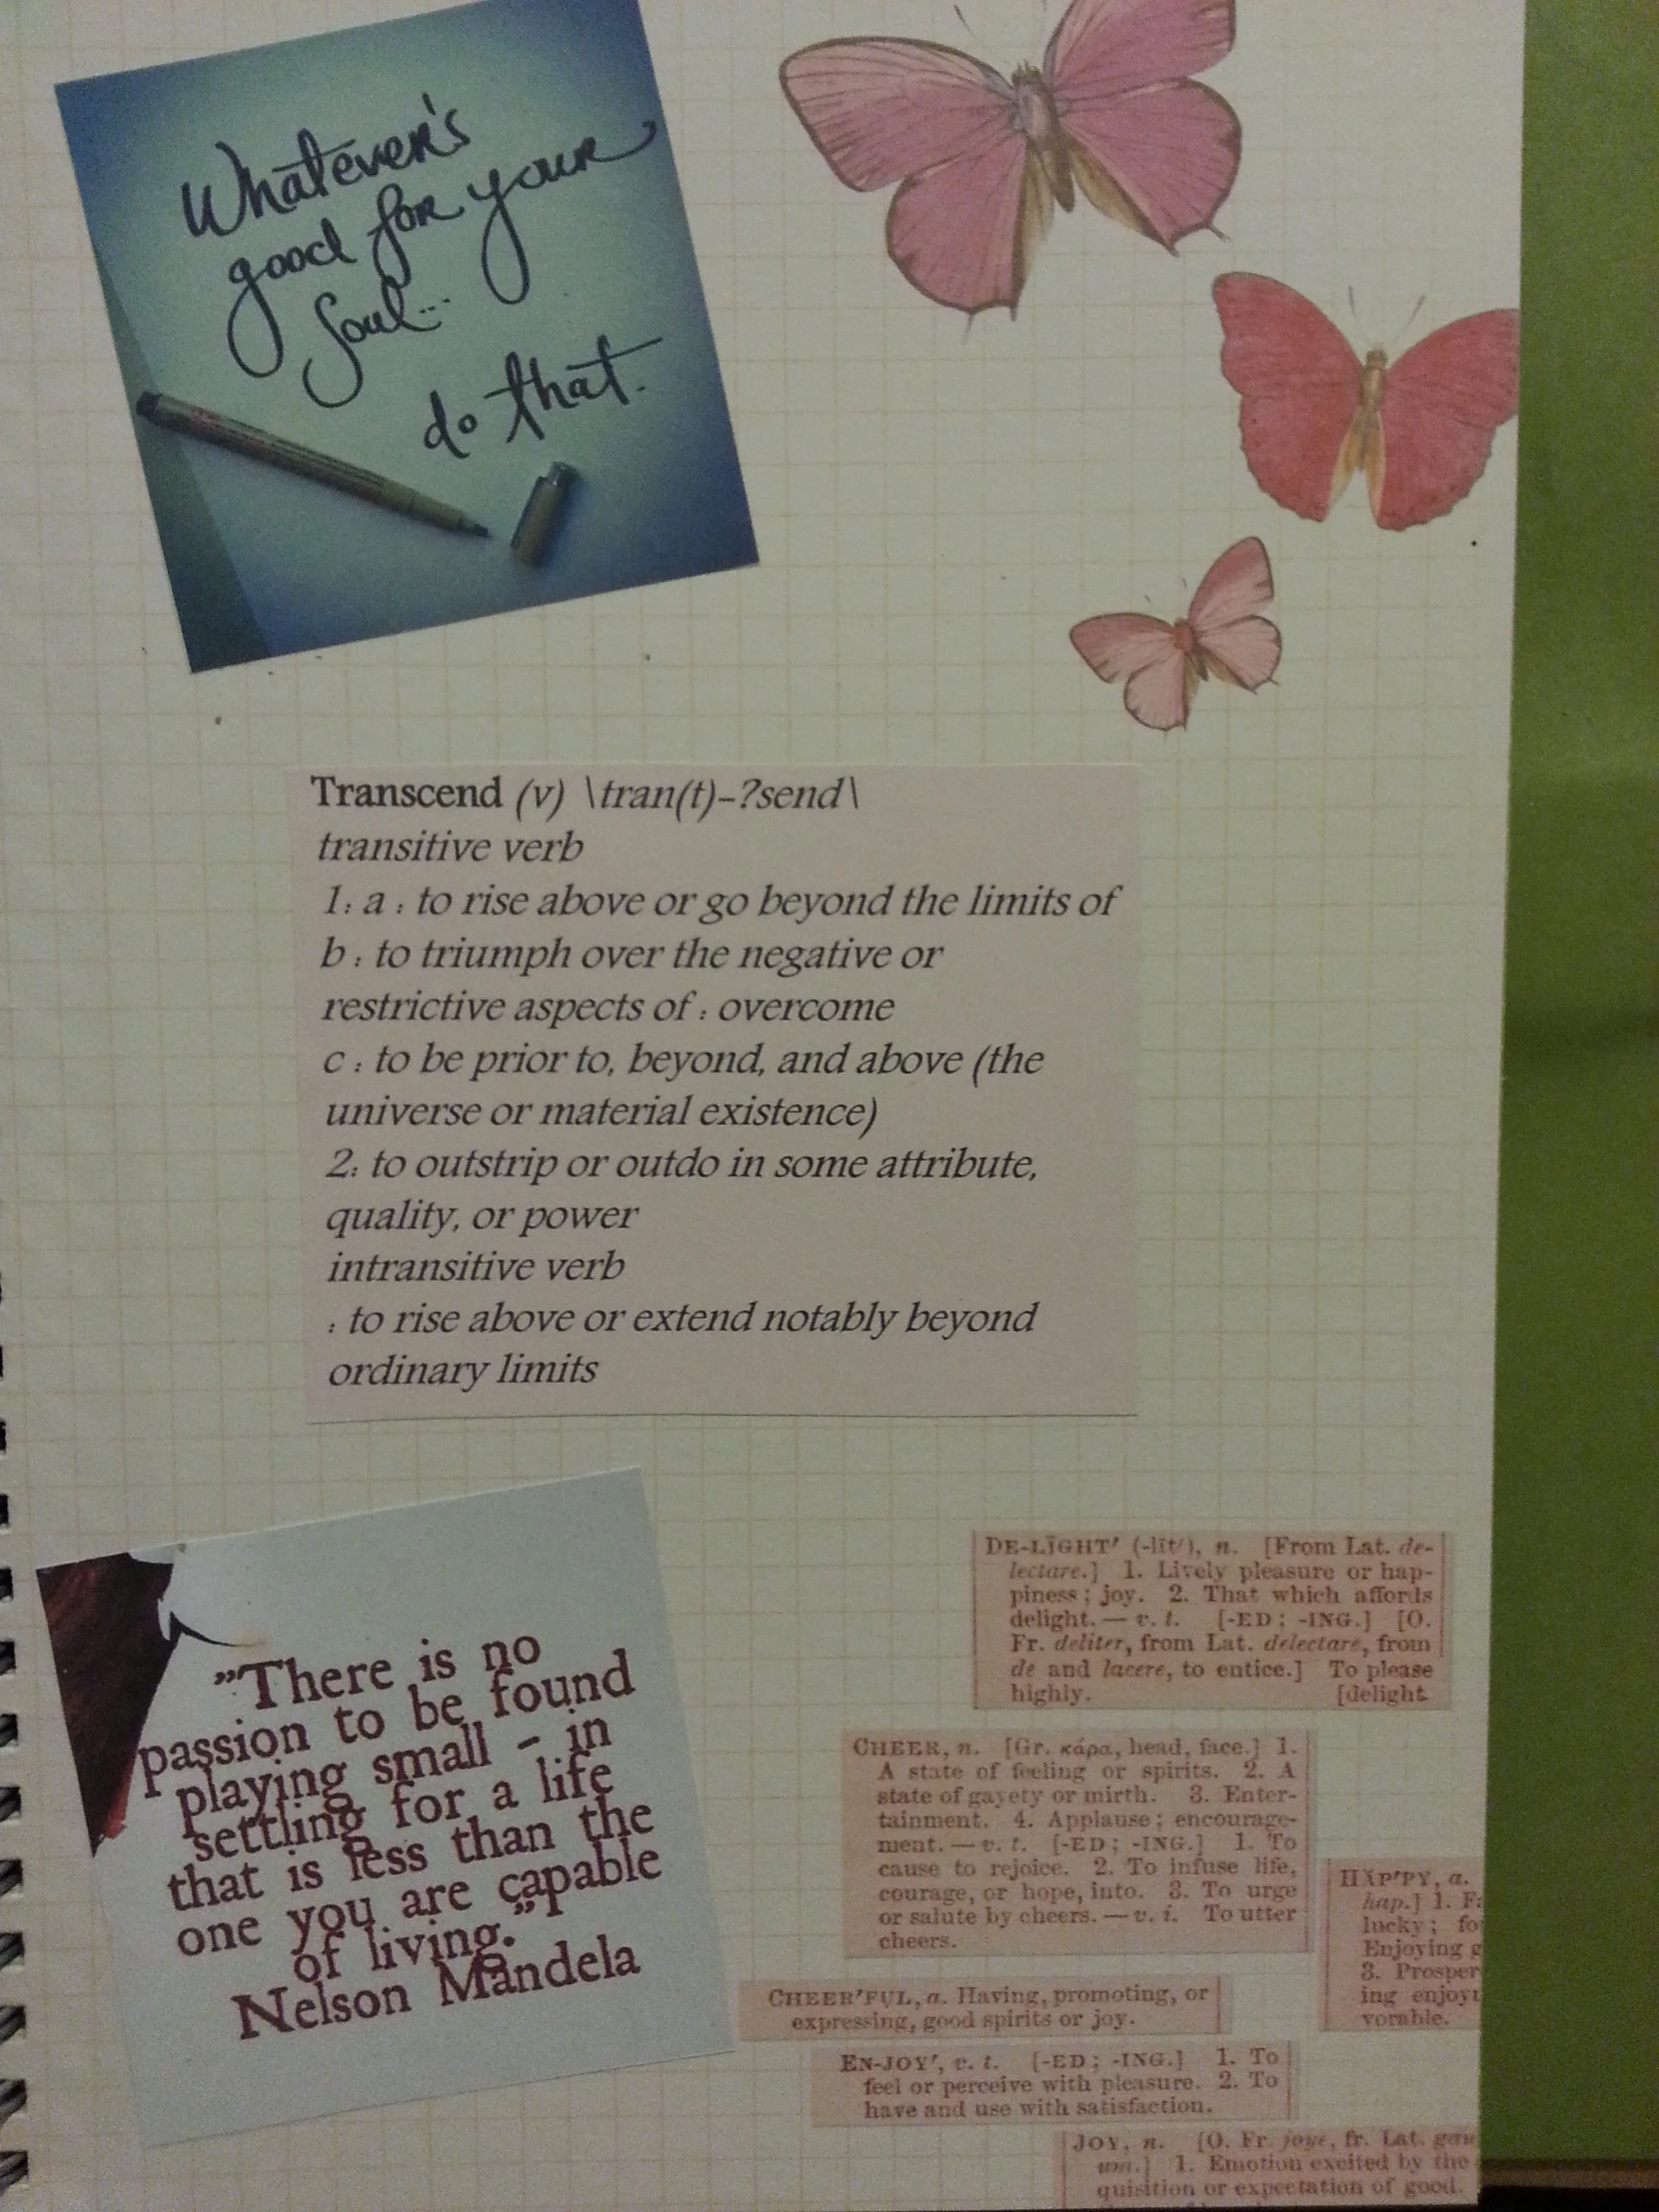 Whatever's
good for your
soul...
do that.
Transcend (v) \tran(t)-?send\
transitive verb
1: a : to rise above or go beyond the limits of
b : to triumph over the negative or
restrictive aspects of : overcome
c : to be prior to, beyond, and above (the
universe or material existence)
2: to outstrip or outdo in some attribute,
quality, or power
intransitive verb
: to rise above or extend notably beyond
ordinary limits
"There is no
passion to be found
playing small - in
settling for a life
that is less than the
one you are capable
of living."
Nelson Mandela
DE-LĪGHT' (-līt'), n. [From Lat. de-
lectare.] 1. Lively pleasure or hap-
piness; joy. 2. That which affords
delight. — v. t. [-ED; -ING.] [O.
Fr. deliter, from Lat. delectare, from
de and lacere, to entice.] To please
highly. [delight.
CHEER, n. [Gr. κάρα, head, face.] 1.
A state of feeling or spirits. 2. A
state of gayety or mirth. 3. Enter-
tainment. 4. Applause; encourage-
ment. — v. t. [-ED; -ING.] 1. To
cause to rejoice. 2. To infuse life,
courage, or hope, into. 3. To urge
or salute by cheers. — v. i. To utter
cheers.
HĂP'PY, a.
hap.] 1.
lucky;
Enjoying
3. Prosper
ing enjoy
vorable.
CHEER'FUL, a. Having, promoting, or
expressing, good spirits or joy.
EN-JOY', v. t. [-ED; -ING.] 1. To
feel or perceive with pleasure. 2. To
have and use with satisfaction.
JOY, n. [O. Fr. joye, fr. Lat.
1. Emotion excited by the
quisition or expectation of good.